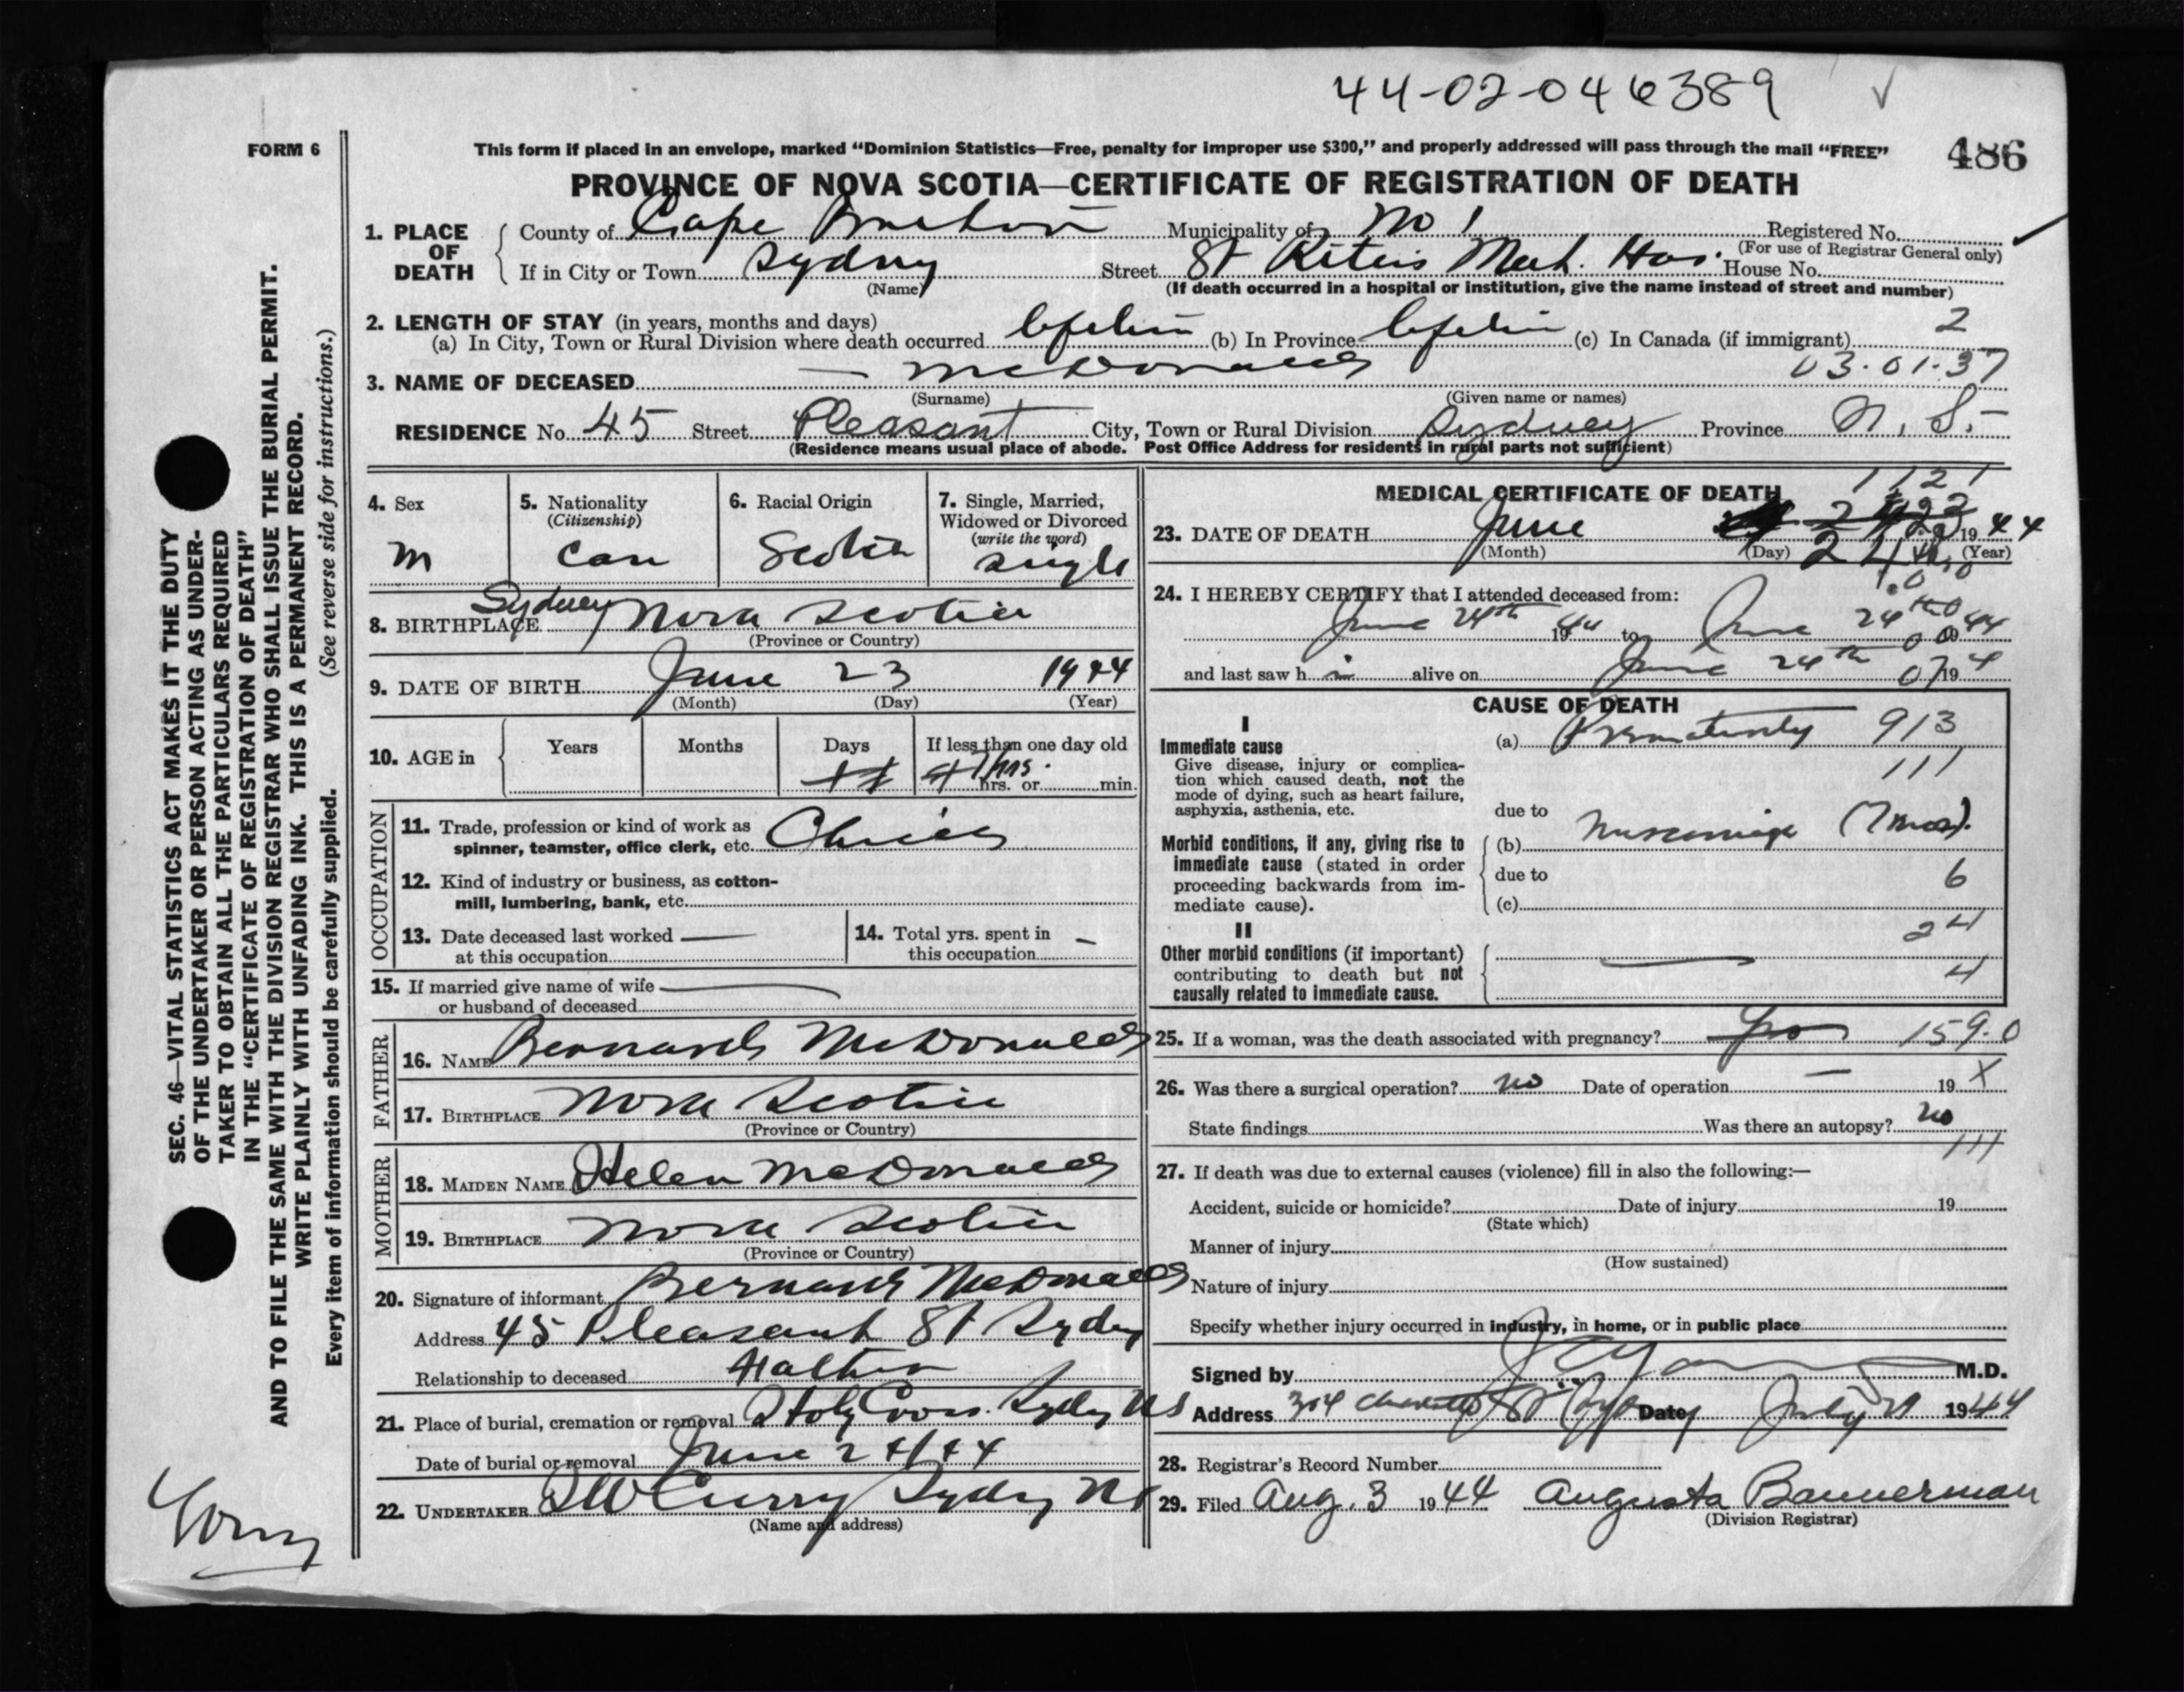 44-02-046389 ✓
FORM 6
This form if placed in an envelope, marked “Dominion Statistics—Free, penalty for improper use $300,” and properly addressed will pass through the mail “FREE”
486
PROVINCE OF NOVA SCOTIA—CERTIFICATE OF REGISTRATION OF DEATH
1. PLACE OF DEATH
County of Cape Breton Municipality of No 1 Registered No.
(For use of Registrar General only)
If in City or Town Sydney Street St Rita's Mat. Hos. House No.
(Name) (If death occurred in a hospital or institution, give the name instead of street and number)
2. LENGTH OF STAY (in years, months and days)
(a) In City, Town or Rural Division where death occurred lifetime (b) In Province lifetime (c) In Canada (if immigrant) 2
3. NAME OF DECEASED — McDonald 03.01.37
(Surname) (Given name or names)
RESIDENCE No. 45 Street Pleasant City, Town or Rural Division Sydney Province N.S.
(Residence means usual place of abode. Post Office Address for residents in rural parts not sufficient)
4. Sex
M
5. Nationality
(Citizenship)
Can
6. Racial Origin
Scotch
7. Single, Married,
Widowed or Divorced
(write the word)
Single
8. BIRTHPLACE Sydney Nova Scotia
(Province or Country)
9. DATE OF BIRTH June 23 1944
(Month) (Day) (Year)
10. AGE in
Years Months Days If less than one day old
hrs. or min.
OCCUPATION
11. Trade, profession or kind of work as
spinner, teamster, office clerk, etc. Child
12. Kind of industry or business, as cotton-
mill, lumbering, bank, etc.
13. Date deceased last worked —
at this occupation
14. Total yrs. spent in
this occupation —
15. If married give name of wife —
or husband of deceased
FATHER
16. NAME Bernard McDonald
17. BIRTHPLACE Nova Scotia
(Province or Country)
MOTHER
18. MAIDEN NAME Helen McDonald
19. BIRTHPLACE Nova Scotia
(Province or Country)
20. Signature of informant Bernard McDonald
Address 45 Pleasant St Sydney
Relationship to deceased Father
21. Place of burial, cremation or removal Holy Cross. Sydney NS
Date of burial or removal June 24/44
22. UNDERTAKER Curry Sydney NS
(Name and address)
MEDICAL CERTIFICATE OF DEATH
1121
23. DATE OF DEATH June 24 1944
(Month) (Day) (Year)
24. I HEREBY CERTIFY that I attended deceased from:
June 24th 1944 to June 24th 1944
and last saw h im alive on June 24th 194
CAUSE OF DEATH
I
Immediate cause
Give disease, injury or complica-
tion which caused death, not the
mode of dying, such as heart failure,
asphyxia, asthenia, etc.
(a) Prematurity 913
111
due to
Morbid conditions, if any, giving rise to
immediate cause (stated in order
proceeding backwards from im-
mediate cause).
(b) Miscarriage (7 mos).
due to 6
(c)
24
II
Other morbid conditions (if important)
contributing to death but not
causally related to immediate cause.
4
25. If a woman, was the death associated with pregnancy? 159.0
26. Was there a surgical operation? no Date of operation — 19 X
State findings Was there an autopsy? no
111
27. If death was due to external causes (violence) fill in also the following:—
Accident, suicide or homicide? Date of injury 19
(State which)
Manner of injury
(How sustained)
Nature of injury
Specify whether injury occurred in industry, in home, or in public place
Signed by M.D.
Address 304 Charlotte St Date July 1944
28. Registrar's Record Number
29. Filed Aug. 3 1944 Augusta Bannerman
(Division Registrar)
SEC. 46—VITAL STATISTICS ACT MAKES IT THE DUTY
OF THE UNDERTAKER OR PERSON ACTING AS UNDER-
TAKER TO OBTAIN ALL THE PARTICULARS REQUIRED
IN THE “CERTIFICATE OF REGISTRATION OF DEATH”
AND TO FILE THE SAME WITH THE DIVISION REGISTRAR WHO SHALL ISSUE THE BURIAL PERMIT.
WRITE PLAINLY WITH UNFADING INK. THIS IS A PERMANENT RECORD.
Every item of information should be carefully supplied. (See reverse side for instructions.)